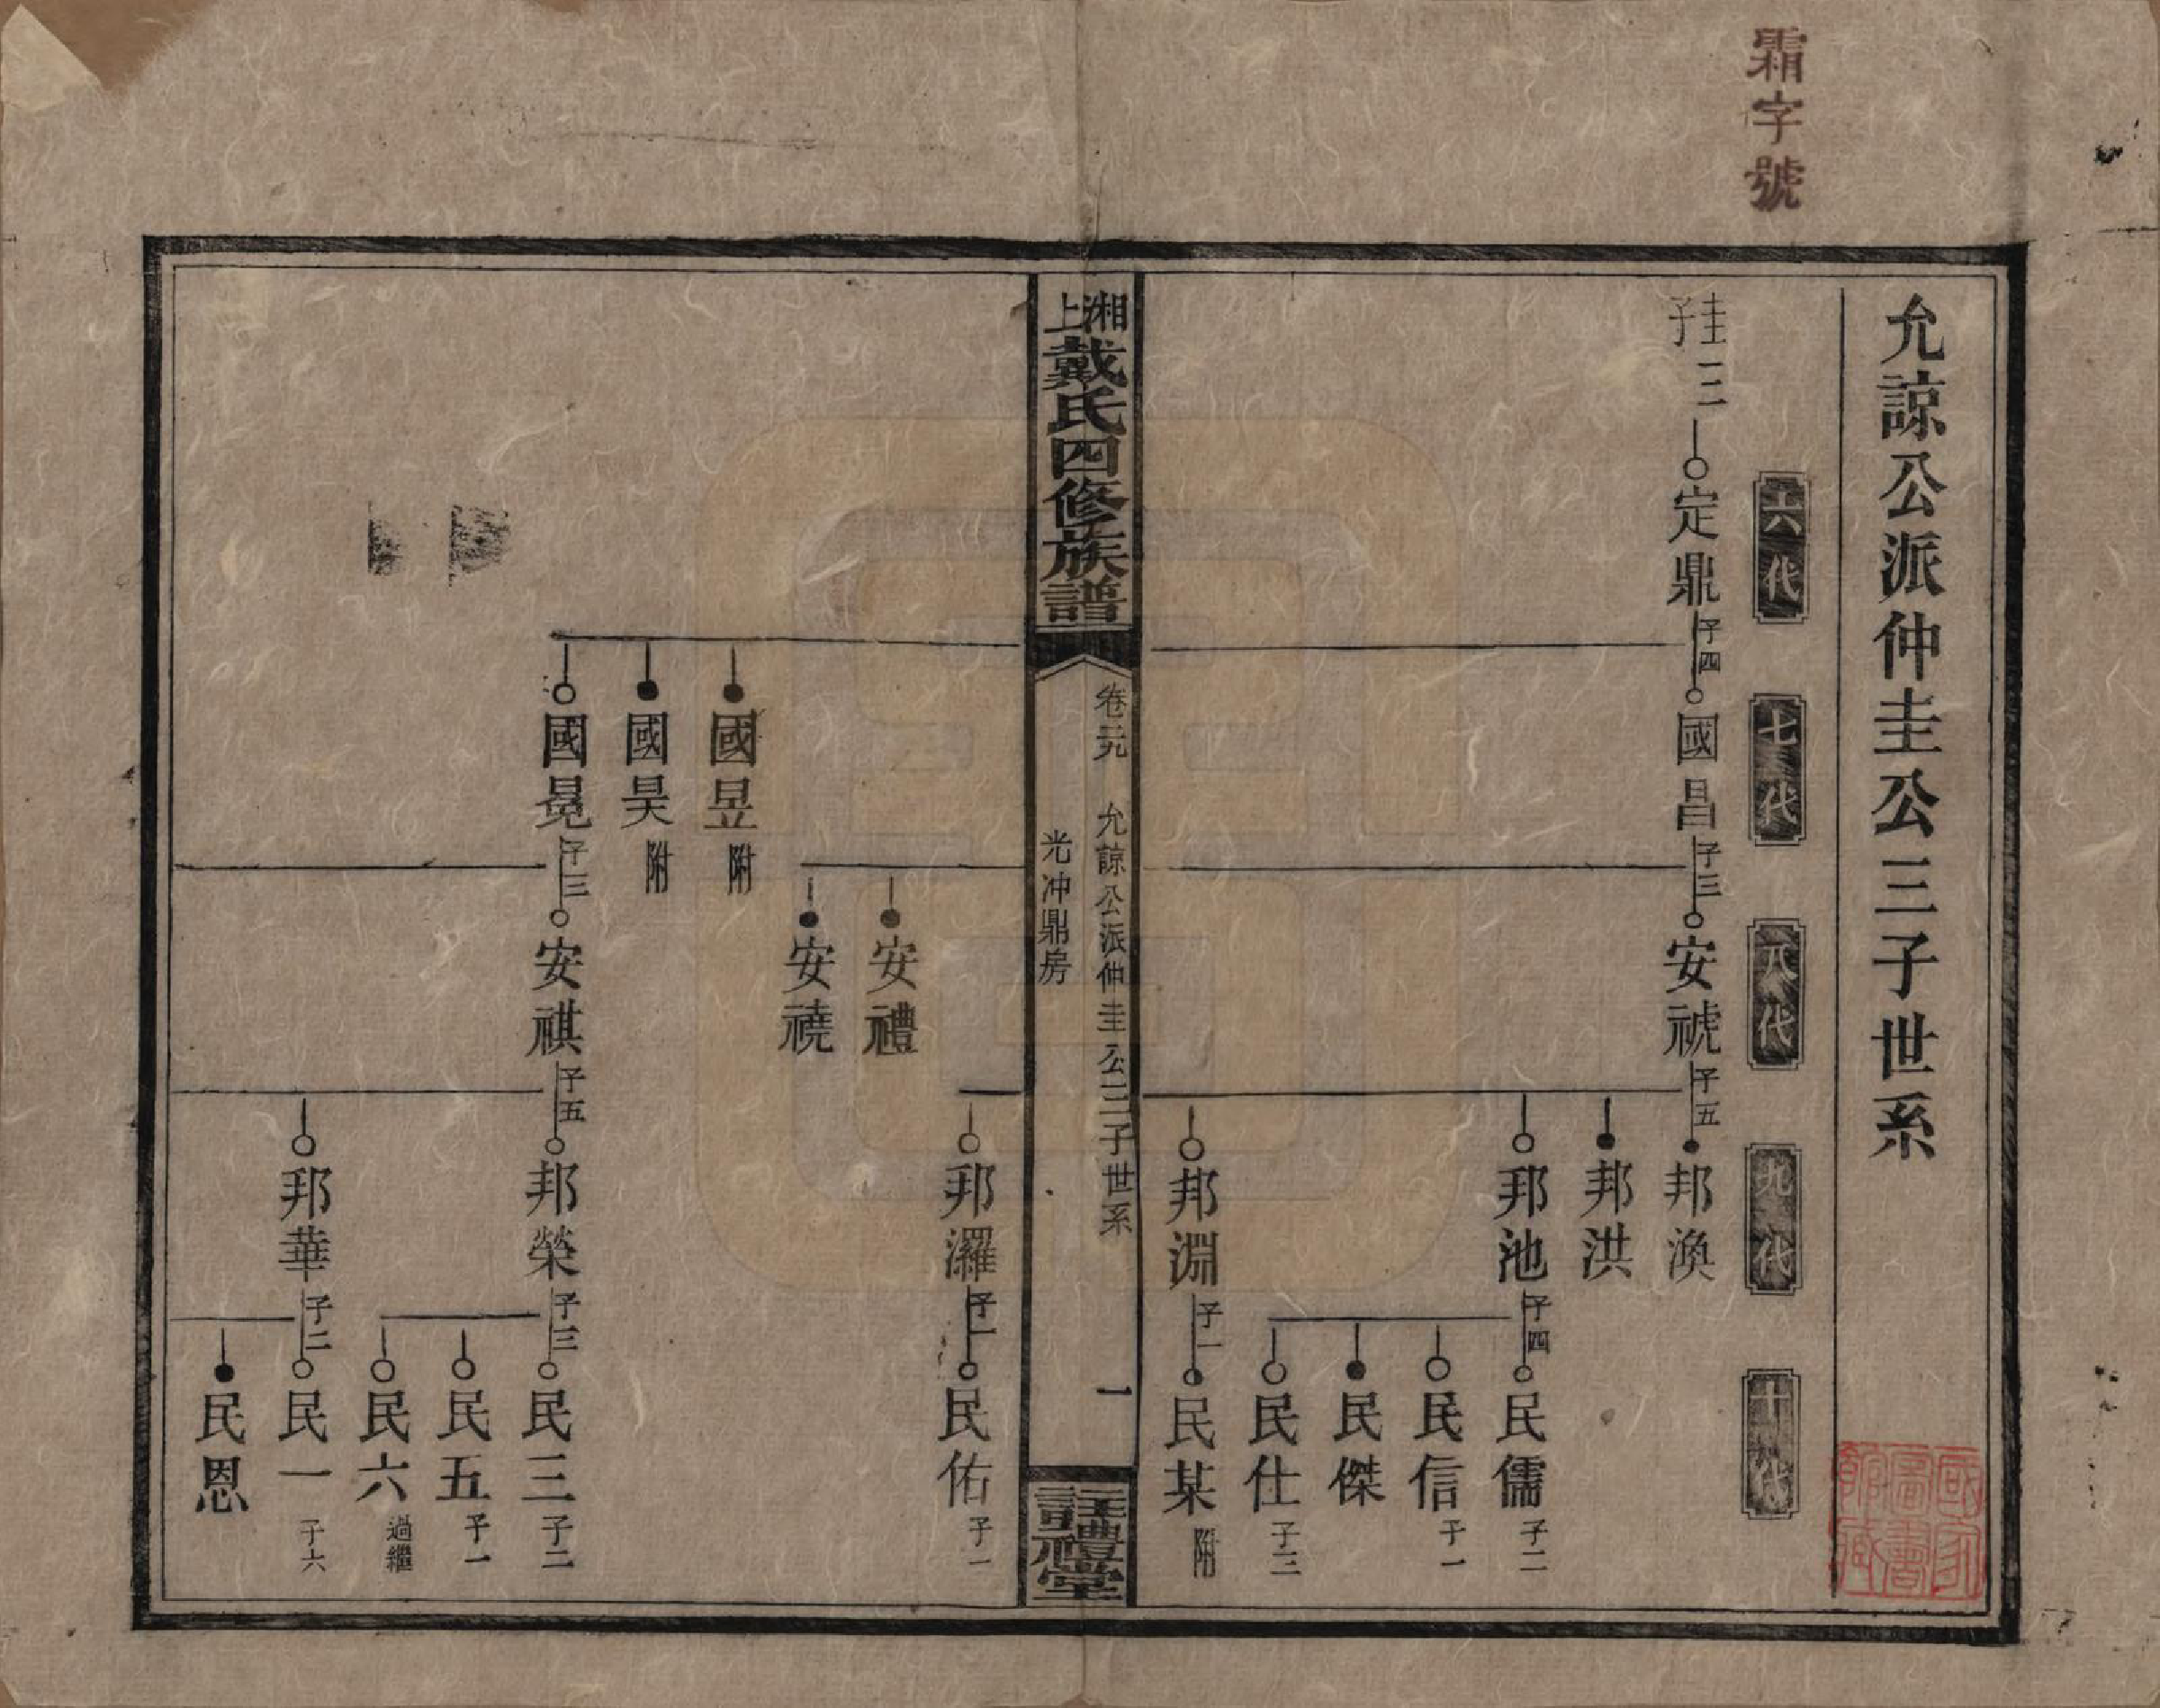 霜字號
允諒公派仲圭公三子世系
六代
七代
八代
九代
十代
圭三子
定鼎 子四
國昌 子三
安禠 子五
邦渙
邦洪
邦池 子四
民儒 子二
民信 子一
民傑
民仕 子三
邦淵 子一
民某 附
湘上戴氏四修族譜
卷元
允諒公派仲圭公三子世系
光冲鼎房
一
註禮堂
邦灑 子一
民佑 子一
安禮
安襓
國昱 附
國昊 附
國晃 子三
安祺 子五
邦榮 子三
民三 子二
民五 子一
民六 過繼
邦華 子二
民一 子六
民恩
國家圖書館藏